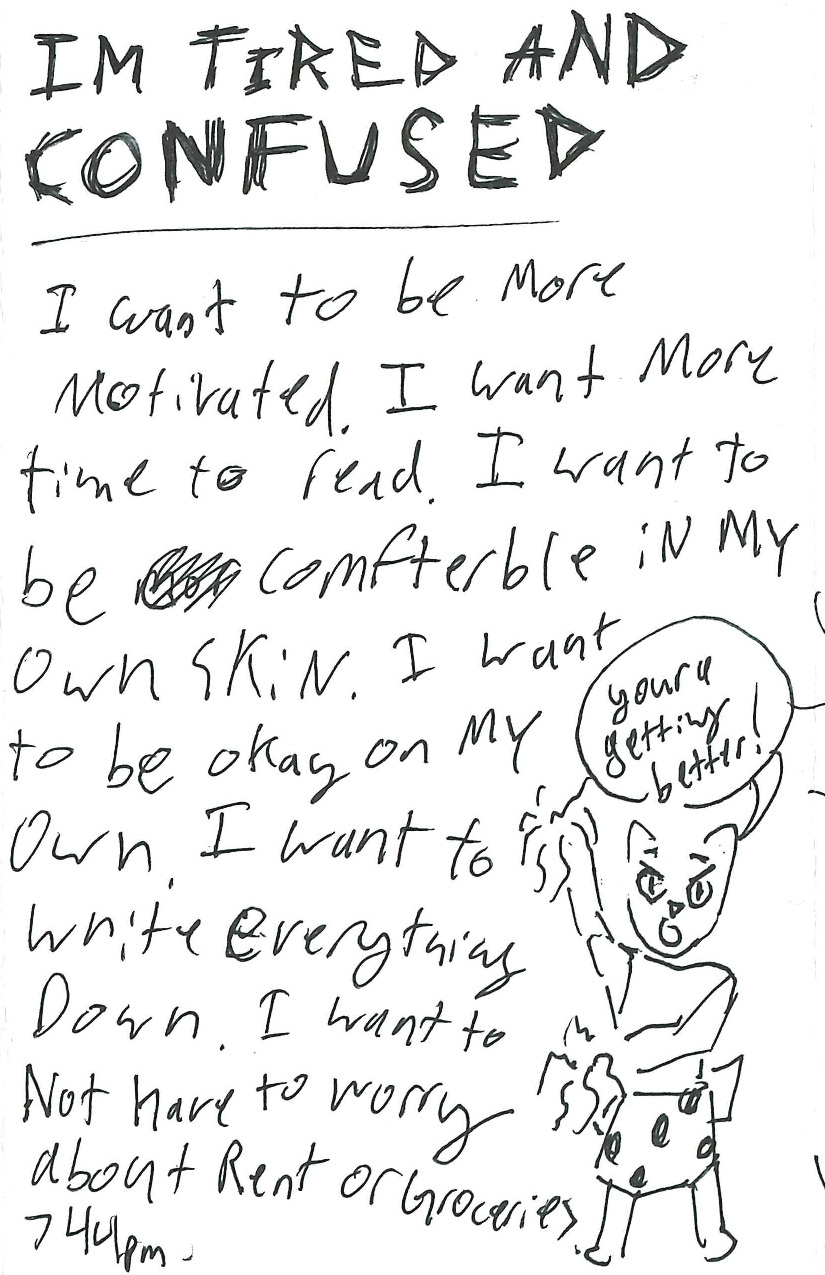 IM TIRED AND
CONFUSED
I want to be More
Motivated. I want More
time to read. I want to
be comfterble iN MY
Own SKiN. I want
to be okay on MY
Own. I want to
write everything
Down. I want to
Not have to worry
about Rent or Groceries
744pm.
your a
getting
better!